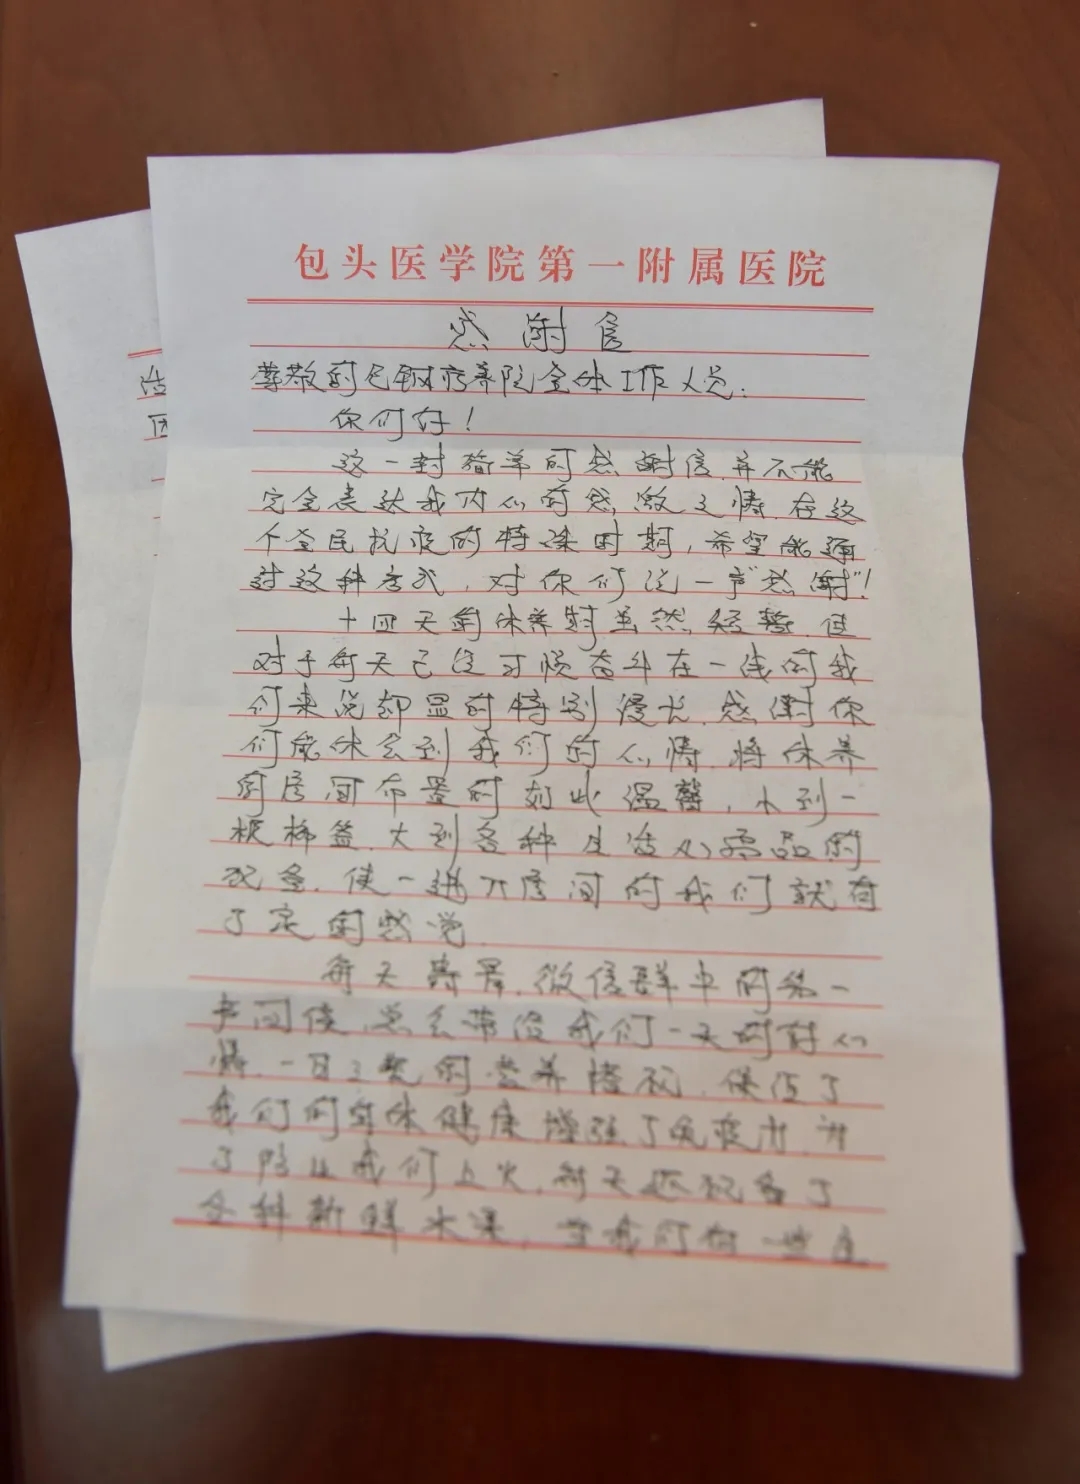 包头医学院第一附属医院
感谢信
尊敬的包钢疗养院全体工作人员：
你们好！
这一封简单的感谢信，并不能
完全表达我内心的感激之情，在这
个全民抗疫的特殊时期，希望能通
过这种方式，对你们说一声“感谢”！
十四天的休养时虽然短暂，但
对于每天已经习惯奋斗在一线的我
们来说却显的特别漫长，感谢你
们能体会到我们的心情，将休养
的房间布置的如此温馨，小到一
根棉签，大到各种生活必需品的
配备，使一进入房间的我们就有
了家的感觉。
每天清晨，微信群中的第一
声问候，总会带给我们一天的好心
情，一日三餐的营养搭配，保证了
我们的身体健康增强了免疫力，为
了防止我们上火，每天还配备了
各种新鲜水果，当我们有一些
治
团